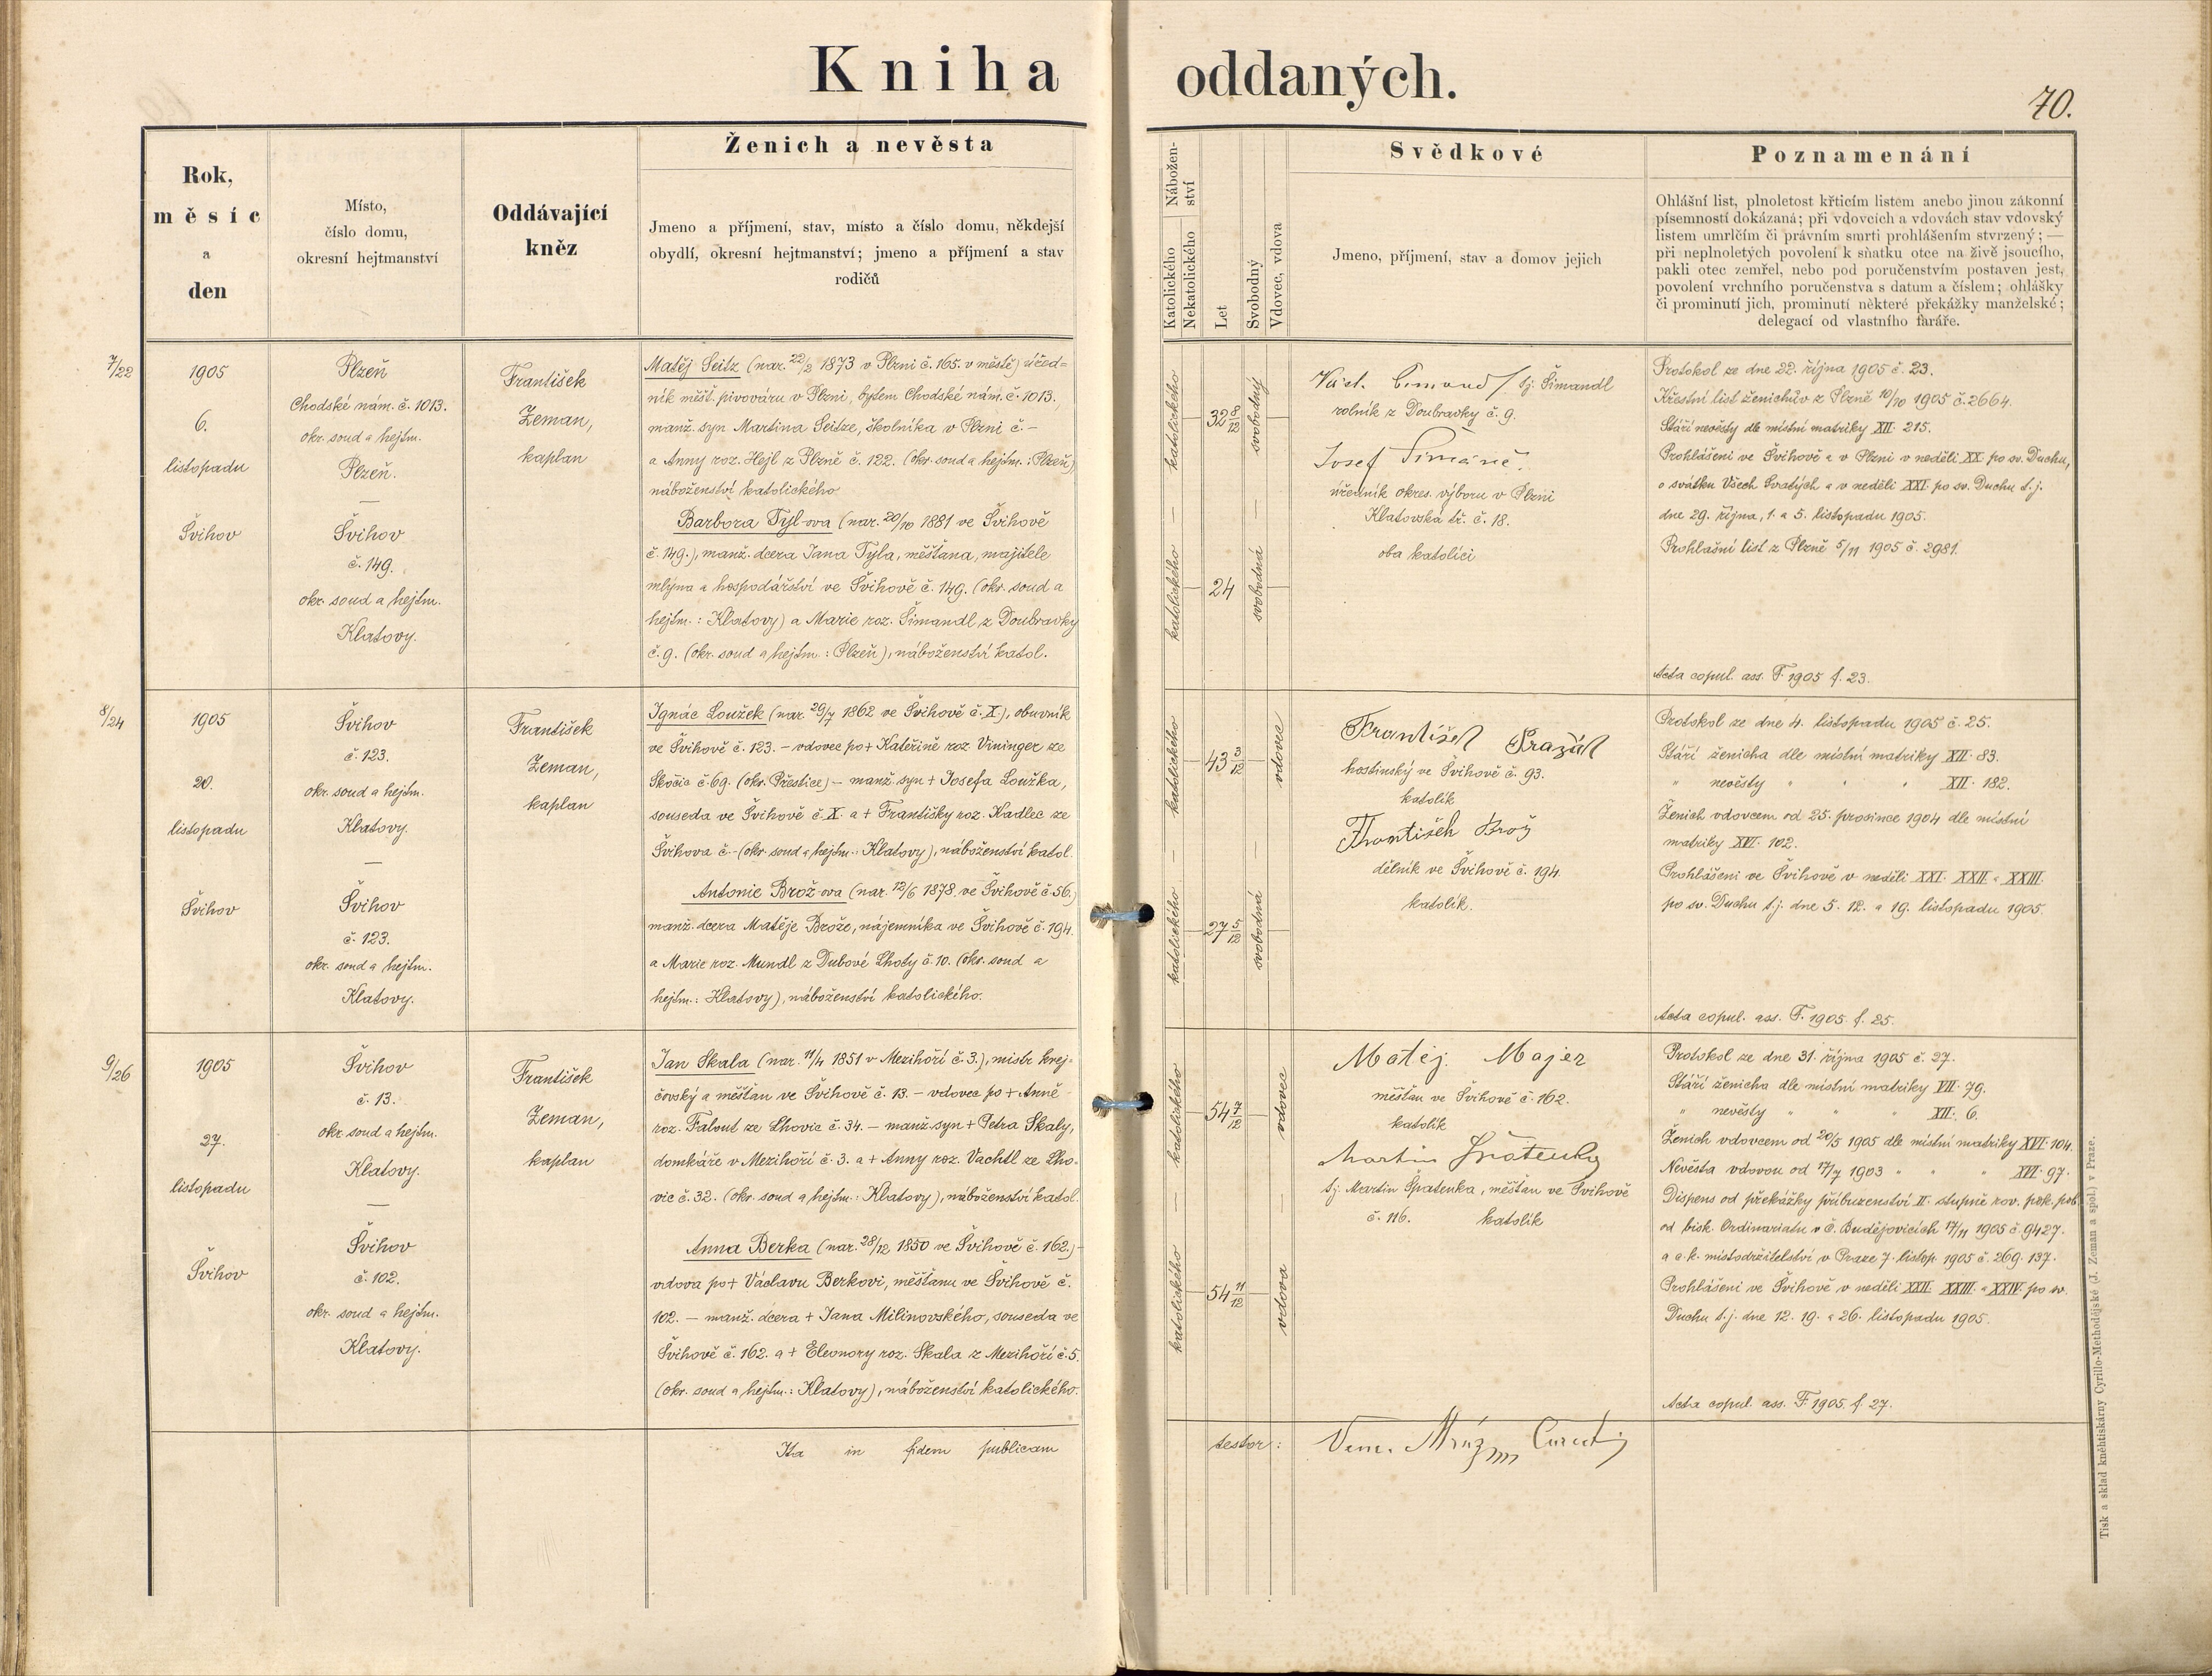 Kniha oddaných.
70.
Rok,
měsíc
a
den
Místo,
číslo domu,
okresní hejtmanství
Oddávající
kněz
Ženich a nevěsta
Jmeno a příjmení, stav, místo a číslo domu, někdejší
obydlí, okresní hejtmanství; jmeno a příjmení a stav
rodičů
Nábožen-
ství
Katolického
Nekatolického
Let
Svobodný
Vdovec, vdova
Svědkové
Jmeno, příjmení, stav a domov jejich
Poznamenání
Ohlášní list, plnoletost křticím listem anebo jinou zákonní
písemností dokázaná; při vdovcích a vdovách stav vdovský
listem umrlčím či právním smrti prohlášením stvrzený; —
při neplnoletých povolení k sňatku otce na živě jsoucího,
pakli otec zemřel, nebo pod poručenstvím postaven jest,
povolení vrchního poručenstva s datum a číslem; ohlášky
či prominutí jich, prominutí některé překážky manželské;
delegací od vlastního faráře.
7/22
1905
6.
listopadu
Švihov
Plzeň
Chodské nám. č. 1013.
okr. soud a hejtm.
Plzeň.
—
Švihov
č. 149.
okr. soud a hejtm.
Klatovy.
František
Zeman,
kaplan
Matěj Seitz (nar. 22/2 1873 v Plzni č. 165. v městě) úřed=
ník měšť. pivováru v Plzni, bytem Chodské nám. č. 1013.,
manž. syn Martina Seitze, školníka v Plzni č. –
a Anny roz. Hejl z Plzně č. 122. (okr. soud a hejtm.: Plzeň)
náboženství katolického.
Barbora Tyl-ova (nar. 20/10 1881 ve Švihově
č. 149.), manž. dcera Jana Tyla, měšťana, majitele
mlýna a hospodářství ve Švihově č. 149. (okr. soud a
hejtm.: Klatovy) a Marie roz. Šimandl z Doubravky
č. 9. (okr. soud a hejtm.: Plzeň), náboženství katol.
katolického
32 8/12
svobodný
katolického
24
svobodná
Václ. Šimandl tj. Šimandl
rolník z Doubravky č. 9.
Josef Šimáně.
úředník okres. výboru v Plzni
Klatovská tř. č. 18.
oba katolíci
Protokol ze dne 22. října 1905 č. 23.
Křestní list ženichův z Plzně 10/10 1905 č. 2664.
Stáří nevěsty dle místní matriky XII. 215.
Prohlášeni ve Švihově a v Plzni v neděli XX. po sv. Duchu,
o svátku Všech Svatých a v neděli XXI. po sv. Duchu t. j.
dne 29. října, 1. a 5. listopadu 1905.
Prohlašní list z Plzně 5/11 1905 č. 2981.
Acta copul. ass. F. 1905 f. 23.
8/24
1905
20.
listopadu
Švihov
Švihov
č. 123.
okr. soud a hejtm.
Klatovy.
—
Švihov
č. 123.
okr. soud a hejtm.
Klatovy.
František
Zeman,
kaplan
Ignác Loužek (nar. 29/7 1862 ve Švihově č. X.), obuvník
ve Švihově č. 123. – vdovec po + Kateřině roz. Vininger ze
Skočic č. 69. (okr. Přestice) – manž. syn + Josefa Loužka,
souseda ve Švihově č. X. a + Františky roz. Kadlec ze
Švihova č. – (okr. soud a hejtm.: Klatovy), náboženství katol.
Antonie Brož-ova (nar. 12/6 1878 ve Švihově č. 56.)
manž. dcera Matěje Brože, nájemníka ve Švihově č. 194.
a Marie roz. Mundl z Dubové Lhoty č. 10. (okr. soud a
hejtm.: Klatovy), náboženství katolického.
katolického
43 3/12
vdovec
katolického
27 5/12
svobodná
František Pražák
hostinský ve Švihově č. 93.
katolík
František Brož
dělník ve Švihově č. 194.
katolík.
Protokol ze dne 4. listopadu 1905 č. 25.
Stáří ženicha dle místní matriky XII. 83.
" nevěsty " " " XII. 182.
Ženich vdovcem od 25. prosince 1904 dle místní
matriky XVI. 102.
Prohlášeni ve Švihově v neděli XXI. XXII. a XXIII.
po sv. Duchu t. j. dne 5. 12. a 19. listopadu 1905.
Acta copul. ass. F. 1905. f. 25.
9/26
1905
27.
listopadu
Švihov
Švihov
č. 13.
okr. soud a hejtm.
Klatovy.
—
Švihov
č. 102.
okr. soud a hejtm.
Klatovy.
František
Zeman,
kaplan
Jan Skala (nar. 11/4 1851 v Mezihoří č. 3.), mistr krej=
čovský a měšťan ve Švihově č. 13. – vdovec po + Anně
roz. Falout ze Lhovic č. 34. – manž. syn + Petra Skaly,
domkáře v Mezihoří č. 3. a + Anny roz. Vachtl ze Lho-
vic č. 32. (okr. soud a hejtm.: Klatovy), náboženství katol.
Anna Berka (nar. 28/12 1850 ve Švihově č. 162.) –
vdova po + Václavu Berkovi, měšťanu ve Švihově č.
102. – manž. dcera + Jana Milinovského, souseda ve
Švihově č. 162. a + Eleonory roz. Skala z Mezihoří č. 5.
(okr. soud a hejtm.: Klatovy), náboženství katolického.
katolického
54 7/12
vdovec
katolického
54 11/12
vdova
Matěj. Majer
měšťan ve Švihově č. 162.
katolík
Martin Špatenka
t. j. Martin Špatenka, měšťan ve Švihově
č. 116. katolík
Protokol ze dne 31. října 1905 č. 27.
Stáří ženicha dle místní matriky VII. 79.
" nevěsty " " " XII. 6.
Ženich vdovcem od 20/5 1905 dle místní matriky XVI. 104.
Nevěsta vdovou od 17/7 1903 " " " XVI. 97.
Dispens od překážky příbuzenství II. stupně rov. pok. pob.
od bisk. Ordinariatu v Č. Budějovicích 17/11 1905 č. 9427.
a c. k. místodržitelství v Praze 7. listop. 1905 č. 269.137.
Prohlášeni ve Švihově v neděli XXII. XXIII. a XXIV. po sv.
Duchu t. j. dne 12. 19. a 26. listopadu 1905.
Acta copul. ass. F. 1905. f. 27.
Ita in fidem publicam testor:
Tisk a sklad kněhtiskárny Cyrillo-Methodějské (J. Zeman a spol.) v Praze.